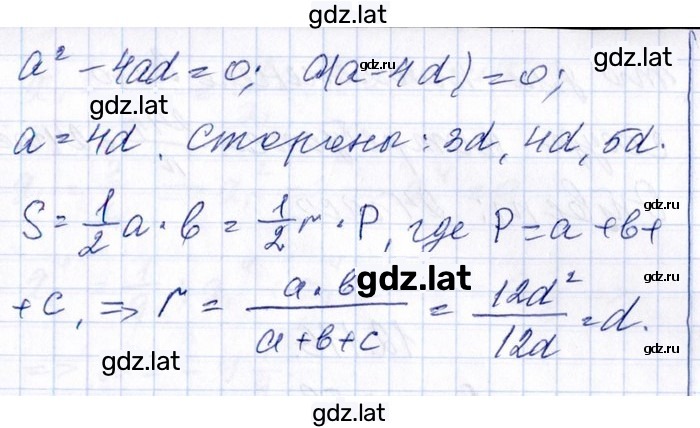 gdz.lat
a² - 4ad = 0; a(a - 4d) = 0;
gdz.lat
gdz.lat
gdz.lat
gdz.lat
a = 4d. Стороны: 3d, 4d, 5d.
gdz.lat
gdz.lat
S = 1/2 a · b = 1/2 r · P, где P = a + b +
gdz.lat
gdz.lat
+ c, ⇒ r = a · b / a + b + c = 12d² / 12d = d.
gdz.lat
gdz.lat
gdz.lat